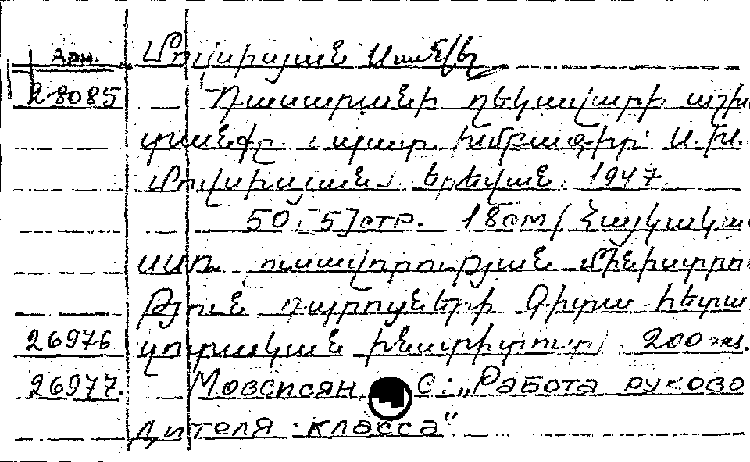 Арм. Մովսիսյան Սամվել
28085 Դասարանի ղեկավարի աշխ
տանքը խմբագիր Ա. Խ.
Մովսիսյան Երեվան 1947
50 [5] стр. 18см / Հայկակա
ՍՍՌ ուսավորության Մինիստրու
թյուն դպրոցների Գիտա հետա
26976 զոտական ինստիտուտ) 200 экз.
26977. Мовсисян С: "Работа руково
дителя класса"